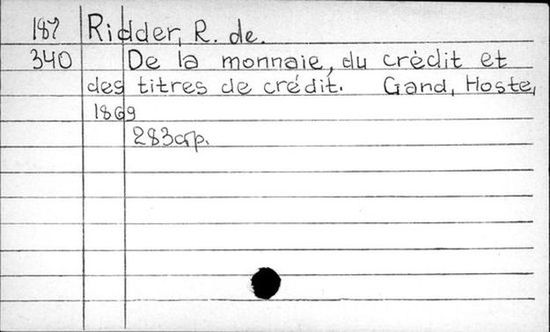 187 Ridder, R. de.
340 De la monnaie, du crédit et
des titres de crédit. Gand, Hoste,
1869
283 p.